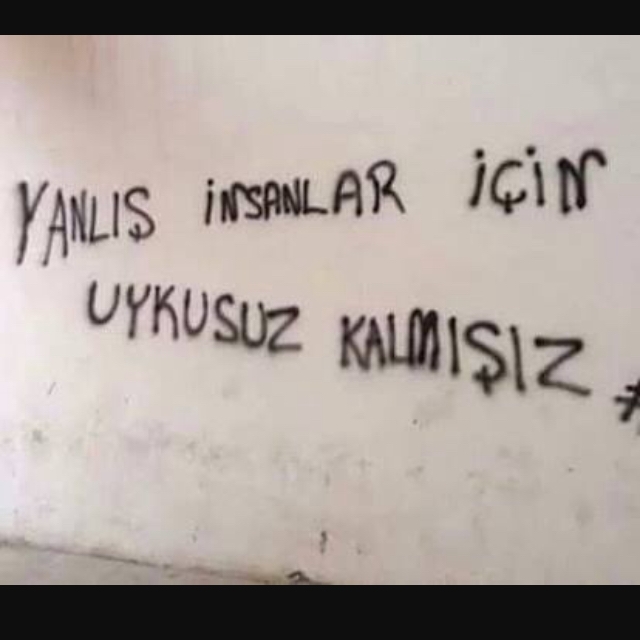 YANLIŞ İNSANLAR İÇİN
UYKUSUZ KALMIŞIZ #